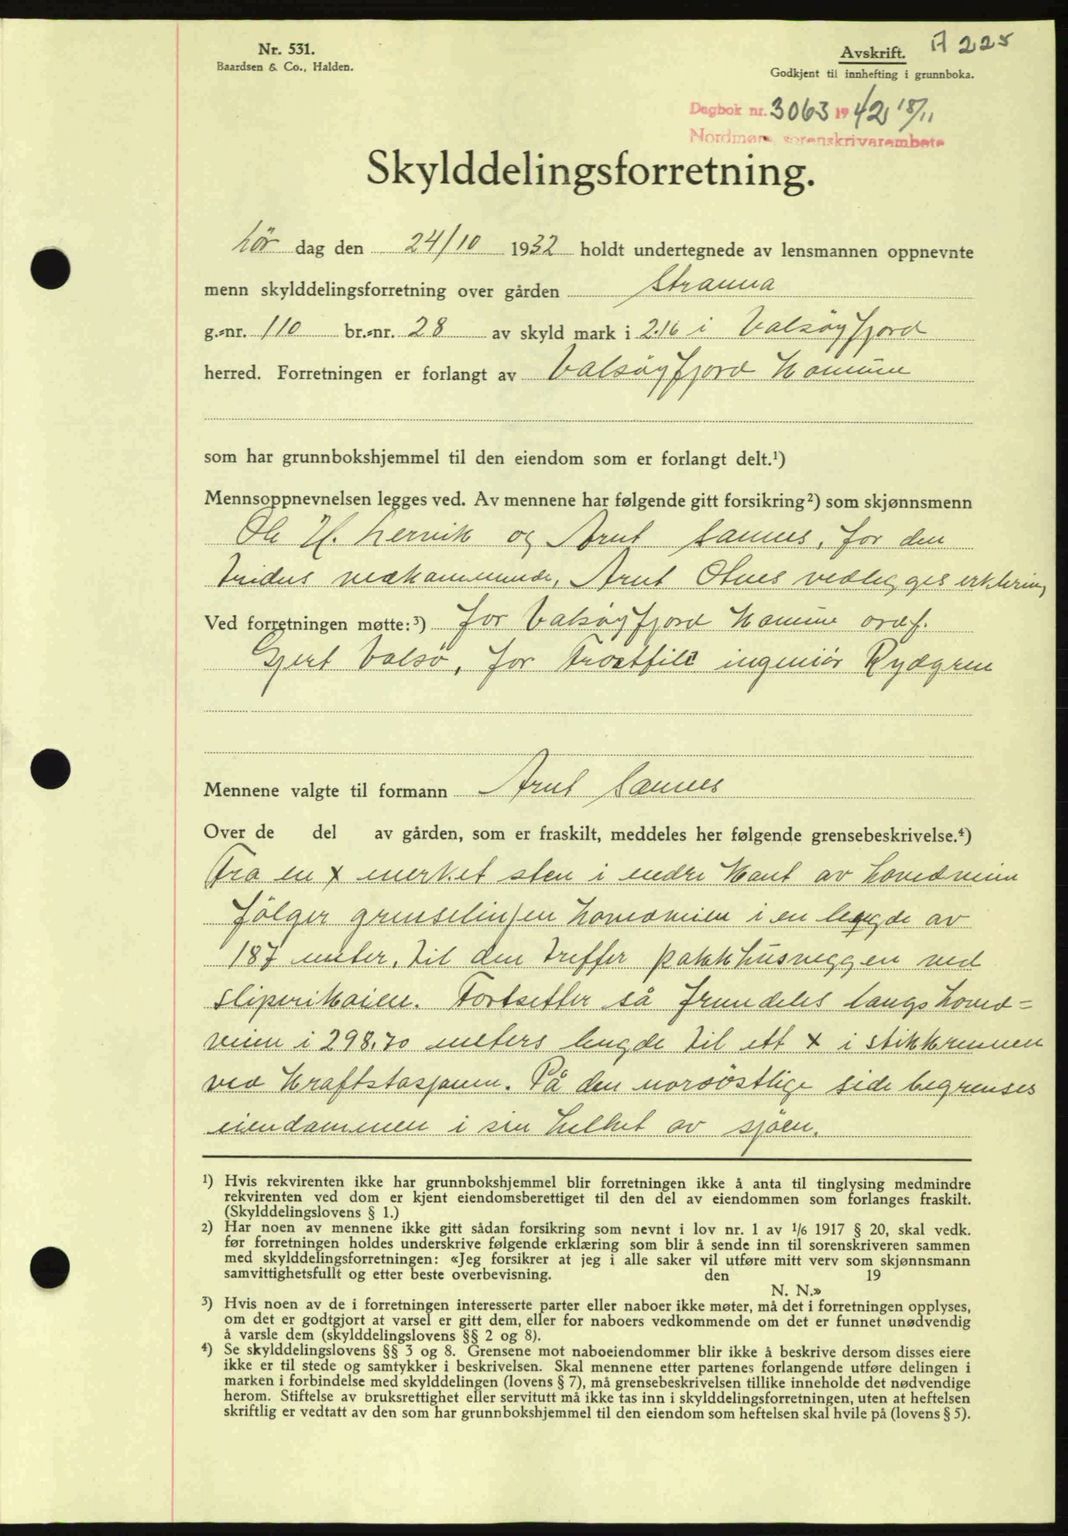 Nr. 531.
Baardsen & Co., Halden.
Avskrift.
Godkjent til innhefting i grunnboka.
A 225
Dagbok nr. 3063 1942 18/11
Nordmøre sorenskrivarembete
Skylddelingsforretning.
Lör dag den 24/10 1932 holdt undertegnede av lensmannen oppnevnte
menn skylddelingsforretning over gården Stranna
g.-nr. 110 br.-nr. 28 av skyld mark i 2.16 i Valsøyfjord
herred. Forretningen er forlangt av Valsøyfjord Komune
som har grunnbokshjemmel til den eiendom som er forlangt delt.¹)
Mennsoppnevnelsen legges ved. Av mennene har følgende gitt forsikring²) som skjønnsmenn
Ole H. Lervik og Arnt Sannes, for den
tridies vedkommende, Arnt Otnes vedlegges erklering
Ved forretningen møtte:³) for Valsøyfjord Komune ordf.
Gjert Valsö, for ingeniör Rydgren
Mennene valgte til formann Arnt Sannes
Over de del av gården, som er fraskilt, meddeles her følgende grensebeskrivelse.⁴)
Fra en x merket sten i nedre Kant av hovedveien
fölger grenselinjen hovedveien i en lengde av
187 meter, til den treffer pakkhusveggen ved
sliperikaien. Fortsetter så fremdeles langs hoved=
veien i 298.70 meters lengde til ett x i stikkrennen
ved Kraftstasjonen. På den nordöstlige side begrenses
eiendommen i sin helhet av sjöen.
¹) Hvis rekvirenten ikke har grunnbokshjemmel blir forretningen ikke å anta til tinglysing medmindre
rekvirenten ved dom er kjent eiendomsberettiget til den del av eiendommen som forlanges fraskilt.
(Skylddelingslovens § 1.)
²) Har noen av mennene ikke gitt sådan forsikring som nevnt i lov nr. 1 av 1/6 1917 § 20, skal vedk.
før forretningen holdes underskrive følgende erklæring som blir å sende inn til sorenskriveren sammen
med skylddelingsforretningen: «Jeg forsikrer at jeg i alle saker vil utføre mitt verv som skjønnsmann
samvittighetsfullt og etter beste overbevisning. den 19
N. N.»
³) Hvis noen av de i forretningen interesserte parter eller naboer ikke møter, må det i forretningen opplyses,
om det er godtgjort at varsel er gitt dem, eller for naboers vedkommende om det er funnet unødvendig
å varsle dem (skylddelingslovens §§ 2 og 8).
⁴) Se skylddelingslovens §§ 3 og 8. Grensene mot naboeiendommer blir ikke å beskrive dersom disses eiere
ikke er til stede og samtykker i beskrivelsen. Skal mennene etter partenes forlangende utføre delingen i
marken i forbindelse med skylddelingen (lovens § 7), må grensebeskrivelsen tillike inneholde det nødvendige
herom. Stiftelse av bruksrettighet eller servitutt må ikke tas inn i skylddelingsforretningen, uten at heftelsen
skriftlig er vedtatt av den som har grunnbokshjemmel til den eiendom som heftelsen skal hvile på (lovens § 5).